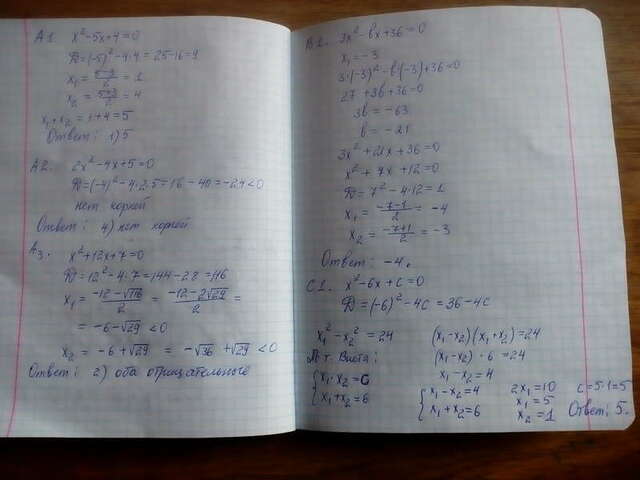 A1. x²-5x+4=0
D=(-5)²-4·4=25-16=9
x₁=(5-3)/2=1
x₂=(5+3)/2=4
x₁+x₂=1+4=5
Ответ: 1) 5
A2. 2x²-4x+5=0
D=(-4)²-4·2·5=16-40=-24<0
нет корней
Ответ: 4) нет корней
A3. x²+12x+7=0
D=12²-4·7=144-28=116
x₁=(-12-√116)/2=(-12-2√29)/2=
=-6-√29<0
x₂=-6+√29=-√36+√29<0
Ответ: 2) оба отрицательные
B2. 3x²-bx+36=0
x₁=-3
3·(-3)²-b·(-3)+36=0
27+3b+36=0
3b=-63
b=-21
3x²+21x+36=0
x²+7x+12=0
D=7²-4·12=1
x₁=(-7-1)/2=-4
x₂=(-7+1)/2=-3
Ответ: -4.
C1. x²-6x+c=0
D=(-6)²-4c=36-4c
x₁²-x₂²=24 (x₁-x₂)(x₁+x₂)=24
По т. Виета: (x₁-x₂)·6=24
{x₁·x₂=c x₁-x₂=4
x₁+x₂=6 {x₁-x₂=4 2x₁=10 c=5·1=5
x₁+x₂=6 x₁=5 Ответ: 5.
x₂=1